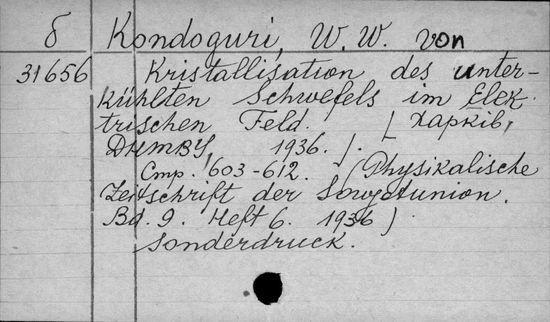 б Kondoguri, W. W. von
31656 Kristallisation des unter-
kühlten Schwefels im Elek-
trischen Feld. [Харків,
ДНТВУ, 1936.].
Стр. 603-612. (Physikalische
Zeitschrift der Sowjetunion.
Bd. 9. Heft 6. 1936)
Sonderdruck.